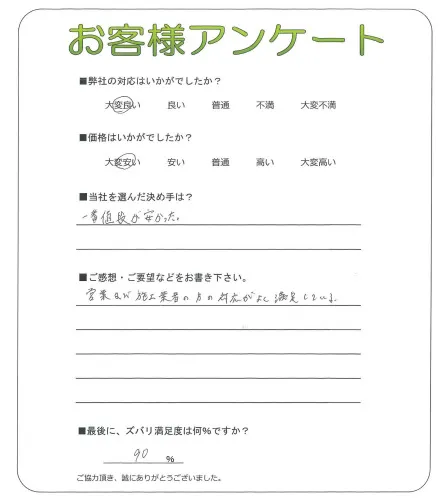 お客様アンケート
■弊社の対応はいかがでしたか？
大変良い 良い 普通 不満 大変不満
■価格はいかがでしたか？
大変安い 安い 普通 高い 大変高い
■当社を選んだ決め手は？
一番値段が安かった。
■ご感想・ご要望などをお書き下さい。
営業及び施工業者の方の対応がよく満足している。
■最後に、ズバリ満足度は何%ですか？
90 %
ご協力頂き、誠にありがとうございました。